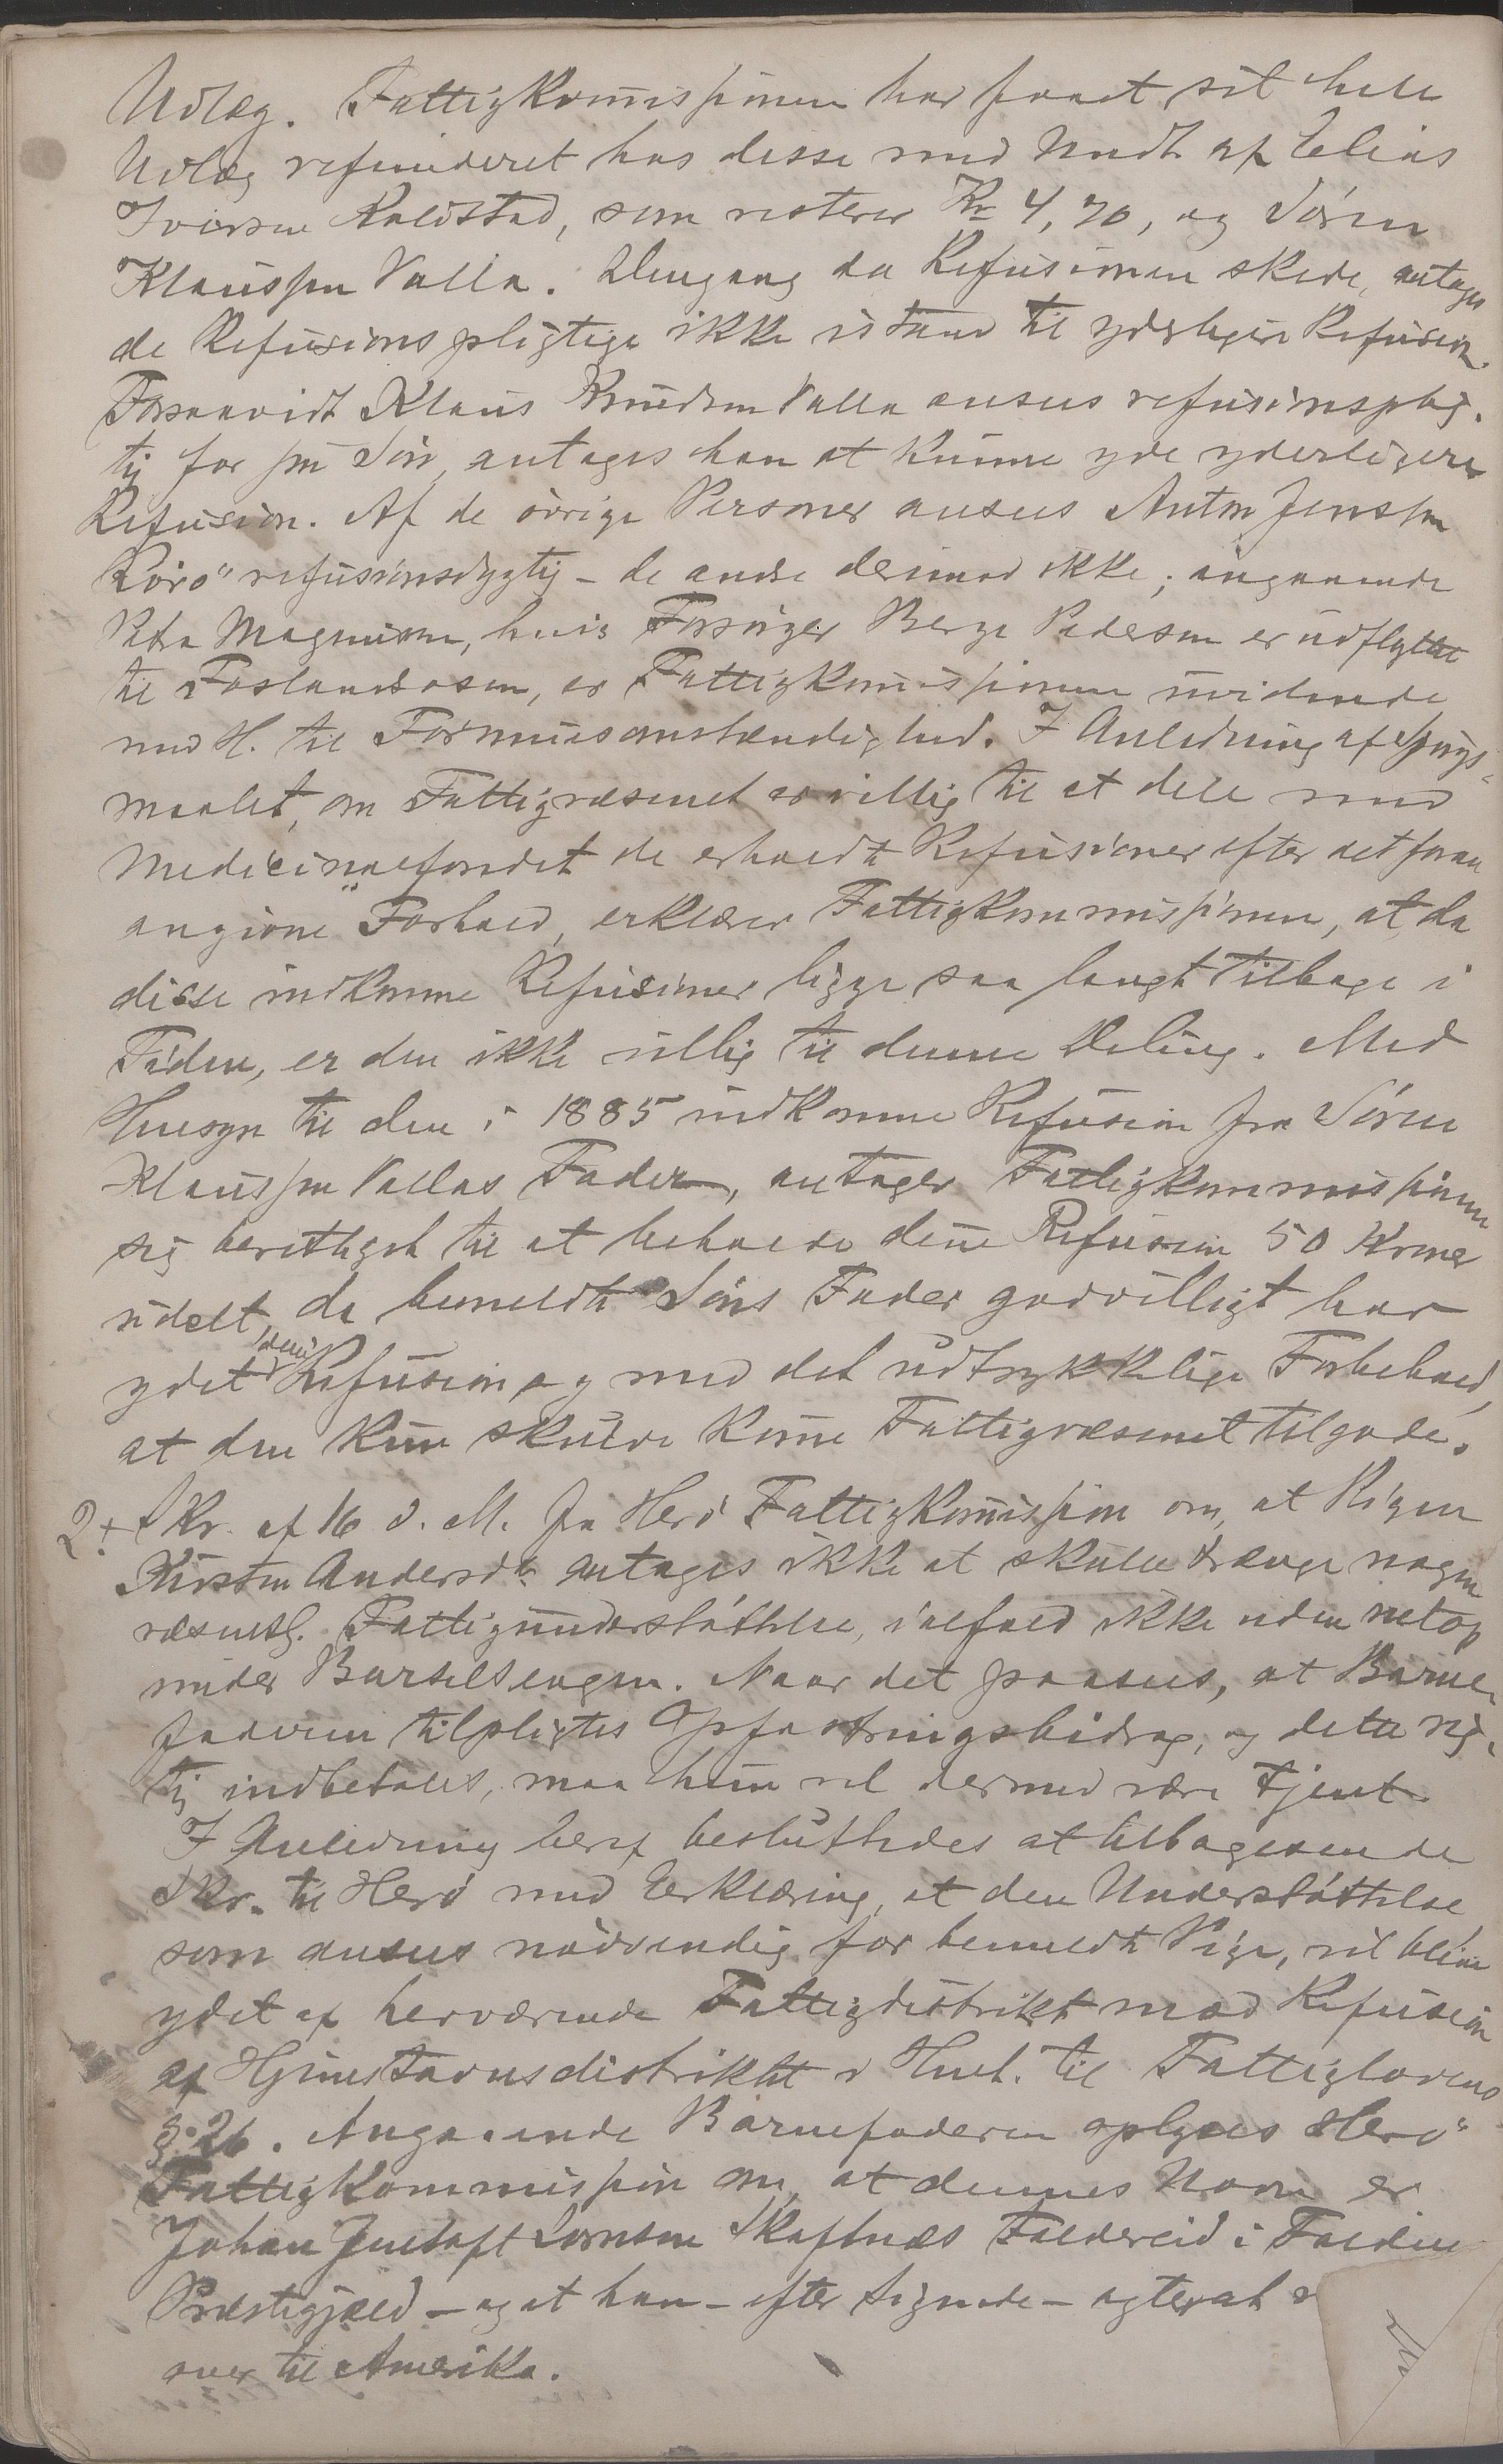 Udlæg. Fattigkommissionen har faaet sit hele
Udlæg refunderet hos disse med Undt. af Elias
Iversen Kaldstad, som resterer Kr 4,70, og Sören
Klaussen Valla. Dengang da Refusionen skede, antages
de Refusionspligtige ikke istand til yderligere Refusion.
Forsaavidt Klaus Knudsen Valla ansees refusionsplig-
tig for sin Sön, antages han at kunne yde yderligere
Refusion. Af de övrige Personer ansees Anton Jenssen
Rörö refusionsdygtig - de andre derimod ikke; angaaende
Petra Magnusen, hvis Forsörger Berge Pedersen er udflyttet
til Foslandsosen, er Fattigkommissionen uvidende
med H. til Formuesomstændighed. I Anledning af Spörgs-
maalet, om Fattigvæsenet er villig til at dele med
Medicinalfondet de erholdte Refusioner efter det foran
angivne Forhold, erklærer Fattigkommissionen, at da
disse indkomne Refusioner ligge saa langt tilbage i
Tiden, er den ikke villig til denne Deling. Med
Hensyn til den i 1885 indkomne Refusion fra Sören
Klaussen Vallas Fader, antager Fattigkommissionen
sig berettiget til at beholde denne Refusion 50 Kroner
udelt, da bemeldte Söns Fader godvilligt har
ydet denne Refusion og med det udtrykkelige Forbehold,
at den kun skulde komme Fattigvæsenet tilgode.
2. Skr. af 16 d. M. fra Herö Fattigkommission om, at Pigen
Kirsten Andersdt. antages ikke at skulle trænge nogen
væsentl. Fattigunderstöttelse, ialfald ikke uden netop
under Barselsengen. Naar det paasees, at Barne-
faderen tilpligtes Opfostringsbidrag, og dette rig-
tig indbetales, maa hun vel dermed være tjent.
I Anledning heraf besluttedes at tilbagesende
Skr. til Herö med Erklæring, at den Understöttelse,
som ansees nödvendig for bemeldte Pige, vil blive
ydet af herværende Fattigdistrikt mod Refusion
af Hjemstavnsdistriktet i Henh. til Fattiglovens
§ 26. Angaaende Barnefaderen oplyses Herö
Fattigkommission om, at dennes Navn er
Johan Gustaf Lorntsen Skafnæs Foldereid i Foldens
Præstegjæld - og at han - efter Sigende - agter at
over til Amerika.